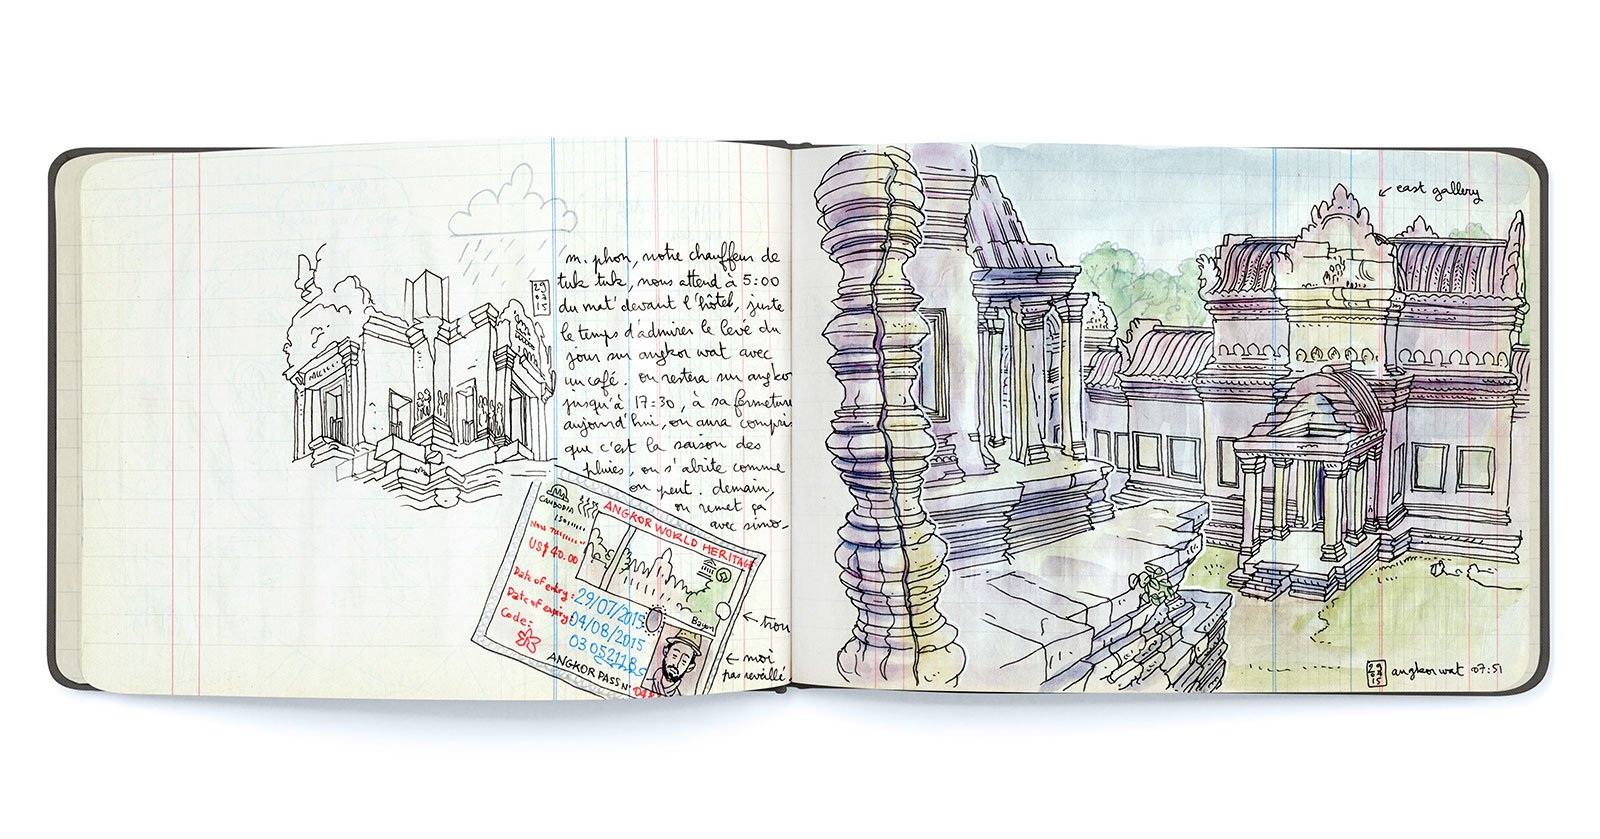 m. phon, notre chauffeur de
tuk tuk, nous attend à 5:00
du mat' devant l'hôtel, juste
le temps d'admirer le levé du
jour sur angkor wat avec
un café. on restera sur angkor
jusqu'à 17:30, à sa fermeture
aujourd'hui, on aura compris
que c'est la saison des
pluies, on s'abrite comme
on peut. demain,
on remet ça
avec simo-
29
07
15
CAMBODIA
ANGKOR WORLD HERITAGE
US$ 40.00
Date of entry: 29/07/2015
Date of expiry: 04/08/2015
Code:
Bayon
ANGKOR PASS N°
← trou
← moi
pas réveillé.
← east gallery
29
07
15
angkor wat 07:51